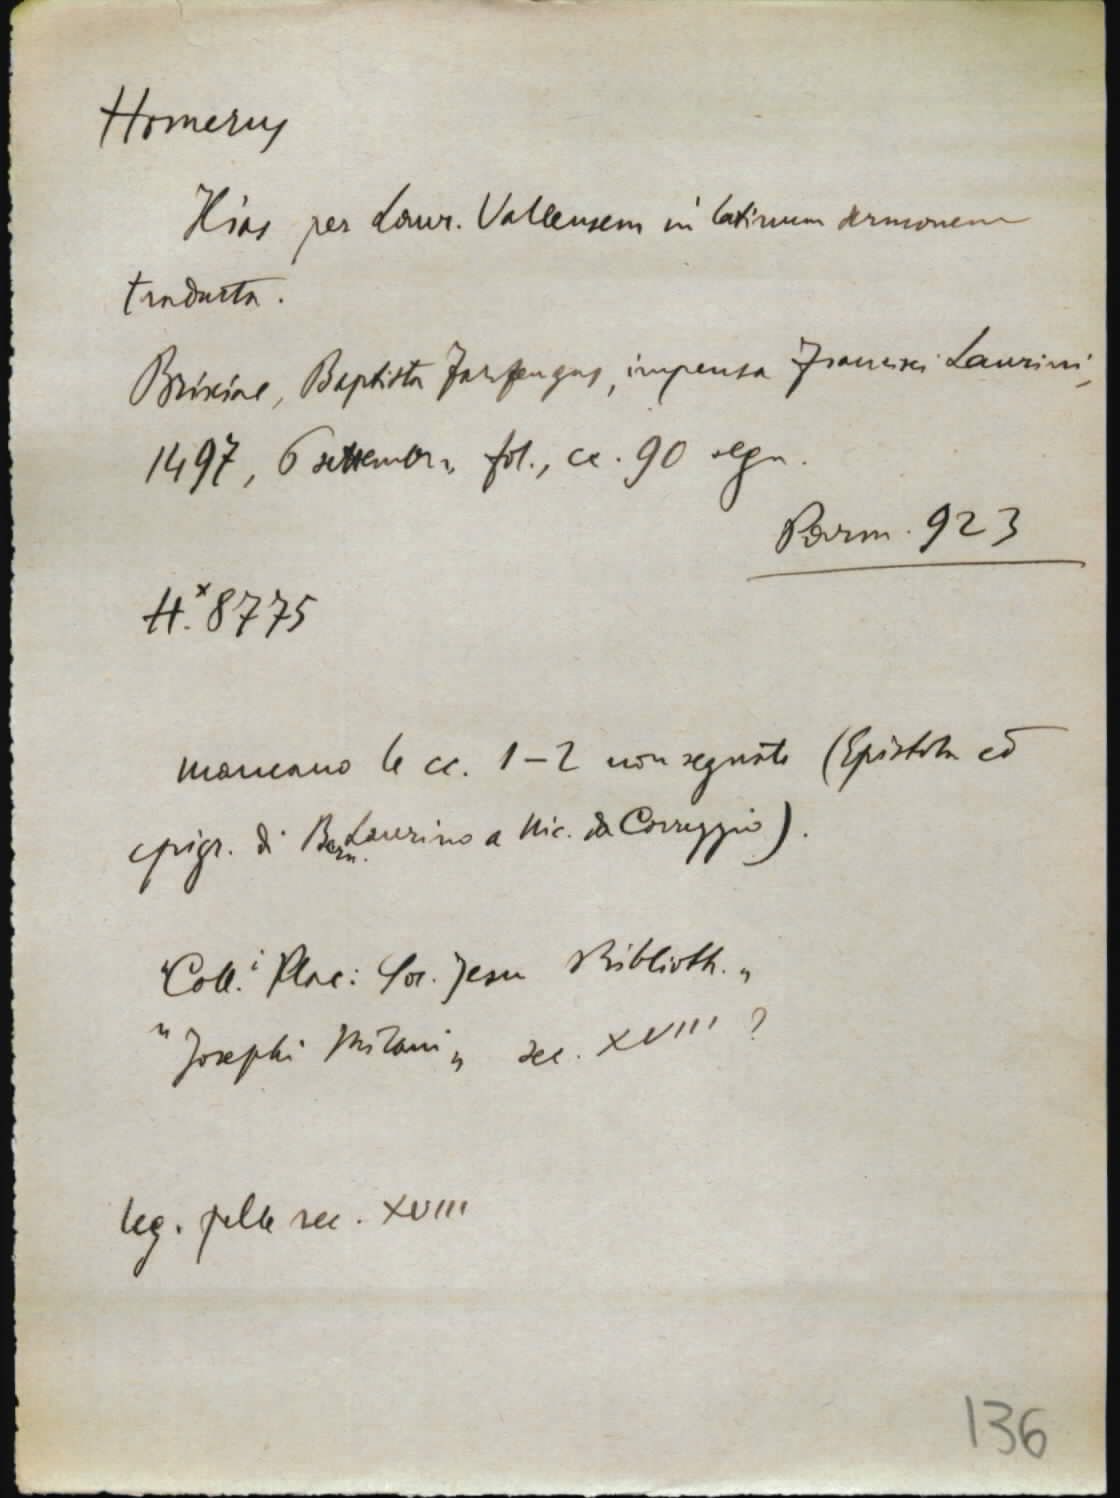 Homerus
Ilias per Laur. Vallensem in latinum sermonem
traducta.
Brixiae, Baptista Farfengus, impensa Francisci Laurini,
1497, 6 settembr., fol., cc. 90 segn.
Parm. 923
H.× 8775
mancano le cc. 1-2 non segnate (Epistola ed
epigr. di Bern. Laurino a Nic. da Correggio).
"Coll.i Plac: Soc. Jesu Biblioth."
"Josephi Milani" sec. XVIII ?
leg. pelle sec. XVIII
136